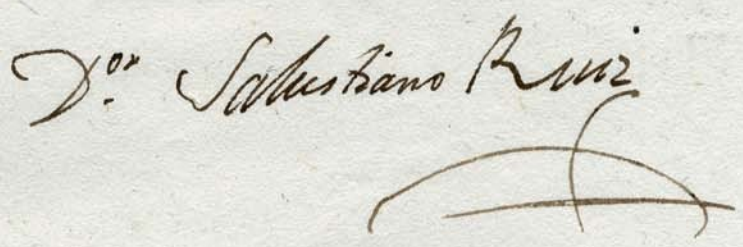 D.or Salustiano Ruiz